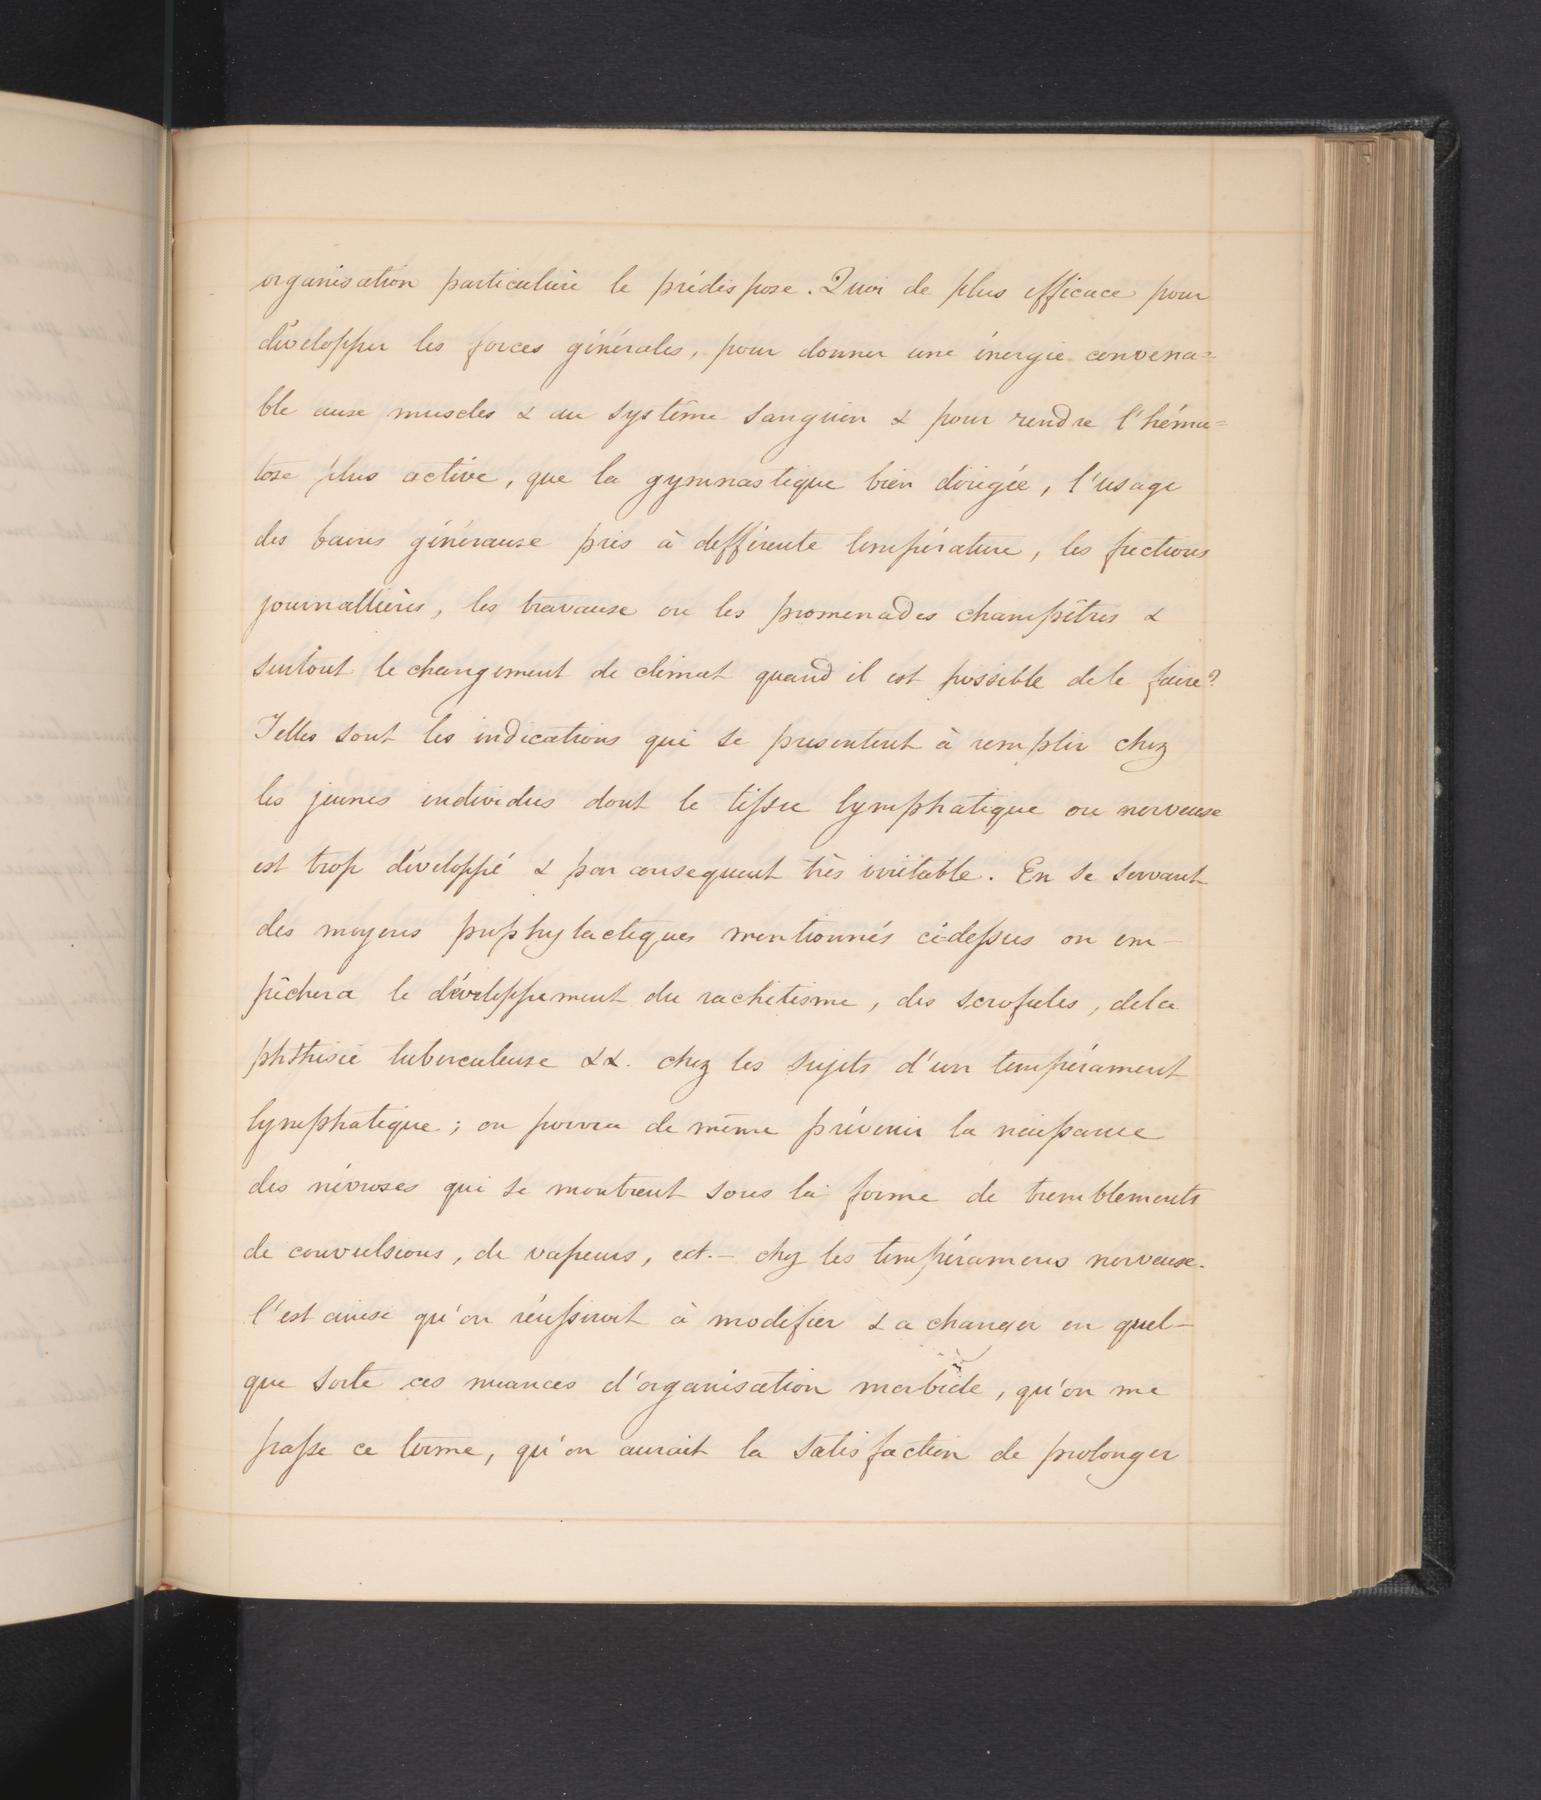 organisation particulière le prédispose. Quoi de plus efficace pour
développer les forces générales, pour donner une énergie convena=
ble aux muscles & au système sanguin & pour rendre l'héma=
tose plus active, que la gymnastique bien dirigée, l'usage
des bains généraux pris à différente température, les frictions
journallières, les travaux ou les promenades champêtres &
surtout le changement de climat quand il est possible de le faire?
Telles sont les indications qui se presentent à remplir chez
les jeunes individus dont le tissu lymphatique ou nerveux
est trop développé & par consequent très irritable. En se servant
des moyens prophylactiques mentionnés ci-dessus on em-
pêchera le développement du rachitisme, des scrofules, de la
phthisie tuberculeuse &&. chez les sujets d'un tempérament
lymphatique; on pourra de même prévenir la naissance
des névroses qui se montrent sous la forme de tremblements
de convulsions, de vapeurs, ect.- chez les tempéramens nerveux.
C'est ainsi qu'on réussirait à modifier & a changer en quel-
que sorte ces nuances d'organisation morbide, qu'on me
passe ce terme, qu'on aurait la satisfaction de prolonger